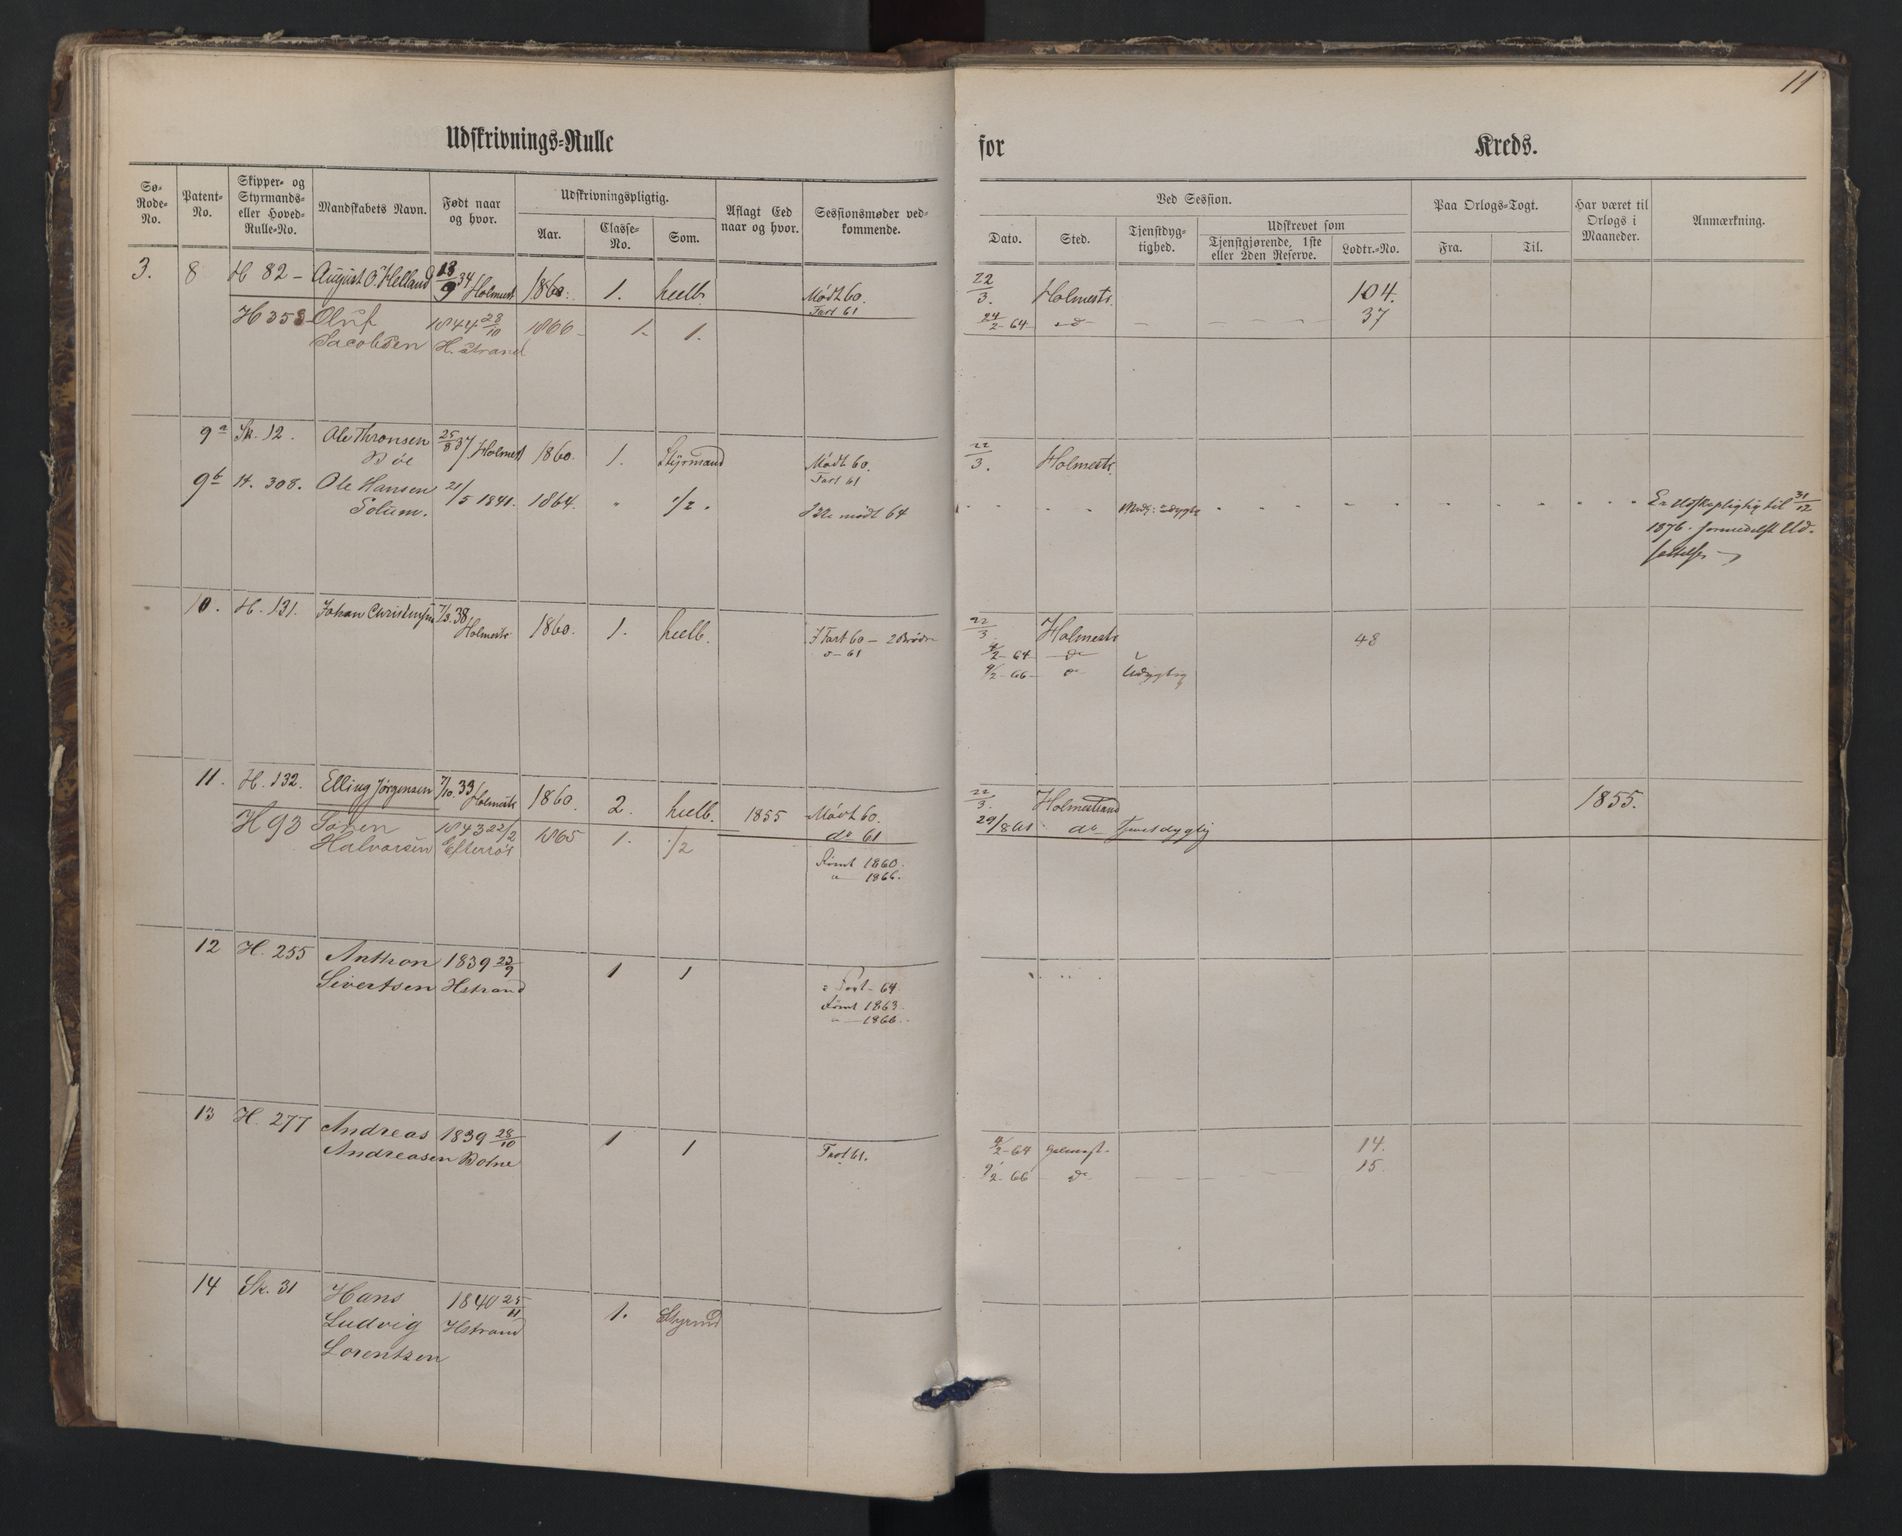 11
Udskrivnings-Rulle for Kreds.
Sø-Rode-No. Patent-No. Skipper- og Styrmands- eller Hoved-Rulle-No. Mandskabets Navn. Født naar og hvor. Udskrivningspligtig. Aar. Classe-No. Som. Aflagt Eed naar og hvor. Sessionsmøder vedkommende.
Ved Session. Dato. Sted. Tjenstdygtighed. Udskrevet som Tjenstgjørende, 1ste eller 2den Reserve. Lodtr.-No. Paa Orlogs-Togt. Fra. Til. Har været til Orlogs i Maaneder. Anmærkning.
3. 8 H 82 - August O. Helland 13/9 34 Holmest 1860. 1. heelb. Mødt 60. 22/3. Holmestr. 104.
Fart 61
H 353 - Oluf 1844 28/10 1866 - 1. 1. 24/2-64 - d - 37
Jacobsen H.strand
9a Sk. 12. Ole Thronsen 25/8 37 Holmest 1860. 1. Styrmand Mødt 60. 22/3. Holmestr.
Bøe Fart 61
9b H. 308. Ole Hansen 21/5 1841. 1864. " 1/2. Ikke mødt 64 Er Udskrpligtig til 31/12
Solum. 1876. formedelst Ud-
10. H. 131. Johan Christensen 7/3 38 Holmestr 1860. 1. heelb. I Fart 60 - 2 Brødre 22/3. Holmestr 48
o - 61 4/2-64 - do
9/2-66 - do Udygtig
11. H. 132. Elling Jørgensen 7/10. 33 Holmestr 1860. 2. heelb. 1855 Mødt 60. 22/3. Holmestrand 1855.
do 61 29/8 61. do Tjenstdygtig
H 93 Søren 1843 22/2 1865 1. 1/2
Halvorsen Efterrøs Rømt 1860.
" 1866.
12 H. 255 Anthon 1839 23/9 1 1
Sivertsen Hstrand Fart - 64.
Rømt 1863.
" - 1866.
13 H. 277 Andreas 1839 28/10 1 1 4/2-64 14.
Andreasen Botne Fart 61. 9/2-66 - do 15.
14 Sk. 31 Hans 1840 25/11 1. Styrmd
Ludvig Hstrand
Lorentzen